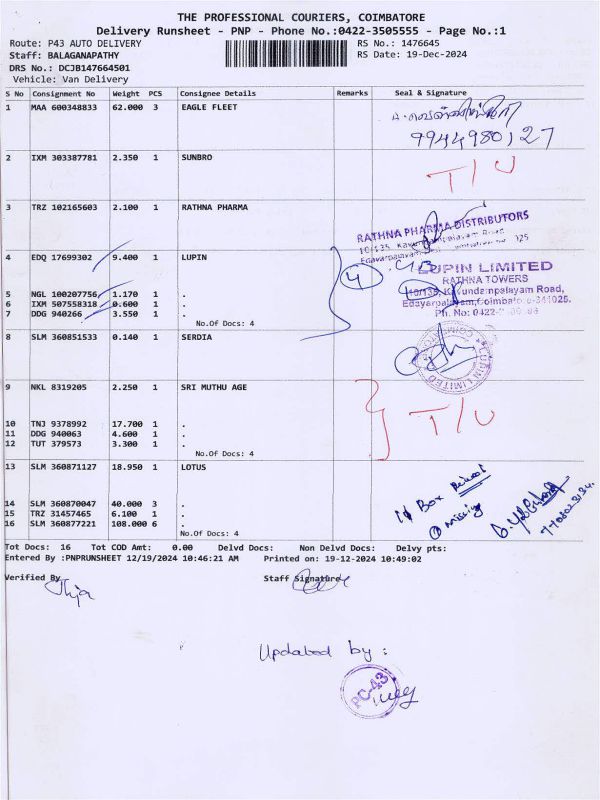 THE PROFESSIONAL COURIERS, COIMBATORE
Delivery Runsheet - PNP - Phone No.:0422-3505555 - Page No.:1
Route: P43 AUTO DELIVERY RS No.: 1476645
Staff: BALAGANAPATHY RS Date: 19-Dec-2024
DRS No.: DCJB147664501
Vehicle: Van Delivery
S No Consignment No Weight PCS Consignee Details Remarks Seal & Signature
1 MAA 600348833 62.000 3 EAGLE FLEET
9944980127
2 IXM 303387781 2.350 1 SUNBRO
T/U
3 TRZ 102165603 2.100 1 RATHNA PHARMA
RATHNA PHARMA DISTRIBUTORS
4 EDQ 17699302 9.400 1 LUPIN
4
LUPIN LIMITED
RATHNA TOWERS
10/135, Kavundampalayam Road,
5 NGL 100207756 1.170 1 .
6 IXM 507558318 0.600 1 .
7 DDG 940266 3.550 1 .
No.Of Docs: 4
8 SLM 360851533 0.140 1 SERDIA
LUPIN LIMITED
9 NKL 8319205 2.250 1 SRI MUTHU AGE
T/U
10 TNJ 9378992 17.700 1 .
11 DDG 940063 4.600 1 .
12 TUT 379573 3.300 1 .
No.Of Docs: 4
13 SLM 360871127 18.950 1 LOTUS
14 SLM 360870047 40.000 3 .
15 TRZ 31457465 6.100 1 .
16 SLM 360877221 108.000 6 .
No.Of Docs: 4
Box
missing
Tot Docs: 16 Tot COD Amt: 0.00 Delvd Docs: Non Delvd Docs: Delvy pts:
Entered By :PNPRUNSHEET 12/19/2024 10:46:21 AM Printed on: 19-12-2024 10:49:02
Verified By Staff Signature
Updated by :
PC-43